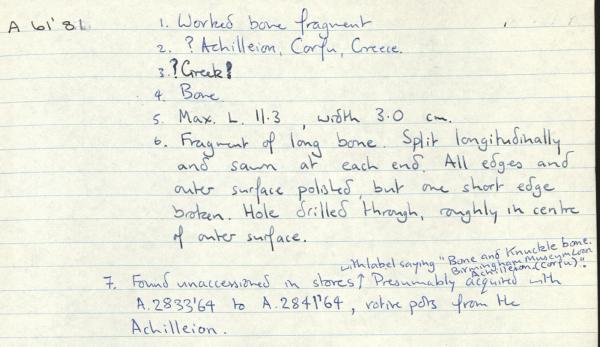 A 61'81
1. Worked bone fragment
2. ? Achilleion, Corfu, Greece.
3. ? Greek?
4. Bone
5. Max. L. 11.3 , width 3.0 cm.
6. Fragment of long bone. Split longitudinally
and sawn at each end. All edges and
outer surface polished, but one short edge
broken. Hole drilled through, roughly in centre
of outer surface.
with label saying "Bone and Knuckle bone.
Birmingham Museum Loan
Achilleion (Corfu)".
7. Found unaccessioned in stores↑ Presumably acquired with
A.2833'64 to A.2841'64, votive pots from the
Achilleion.